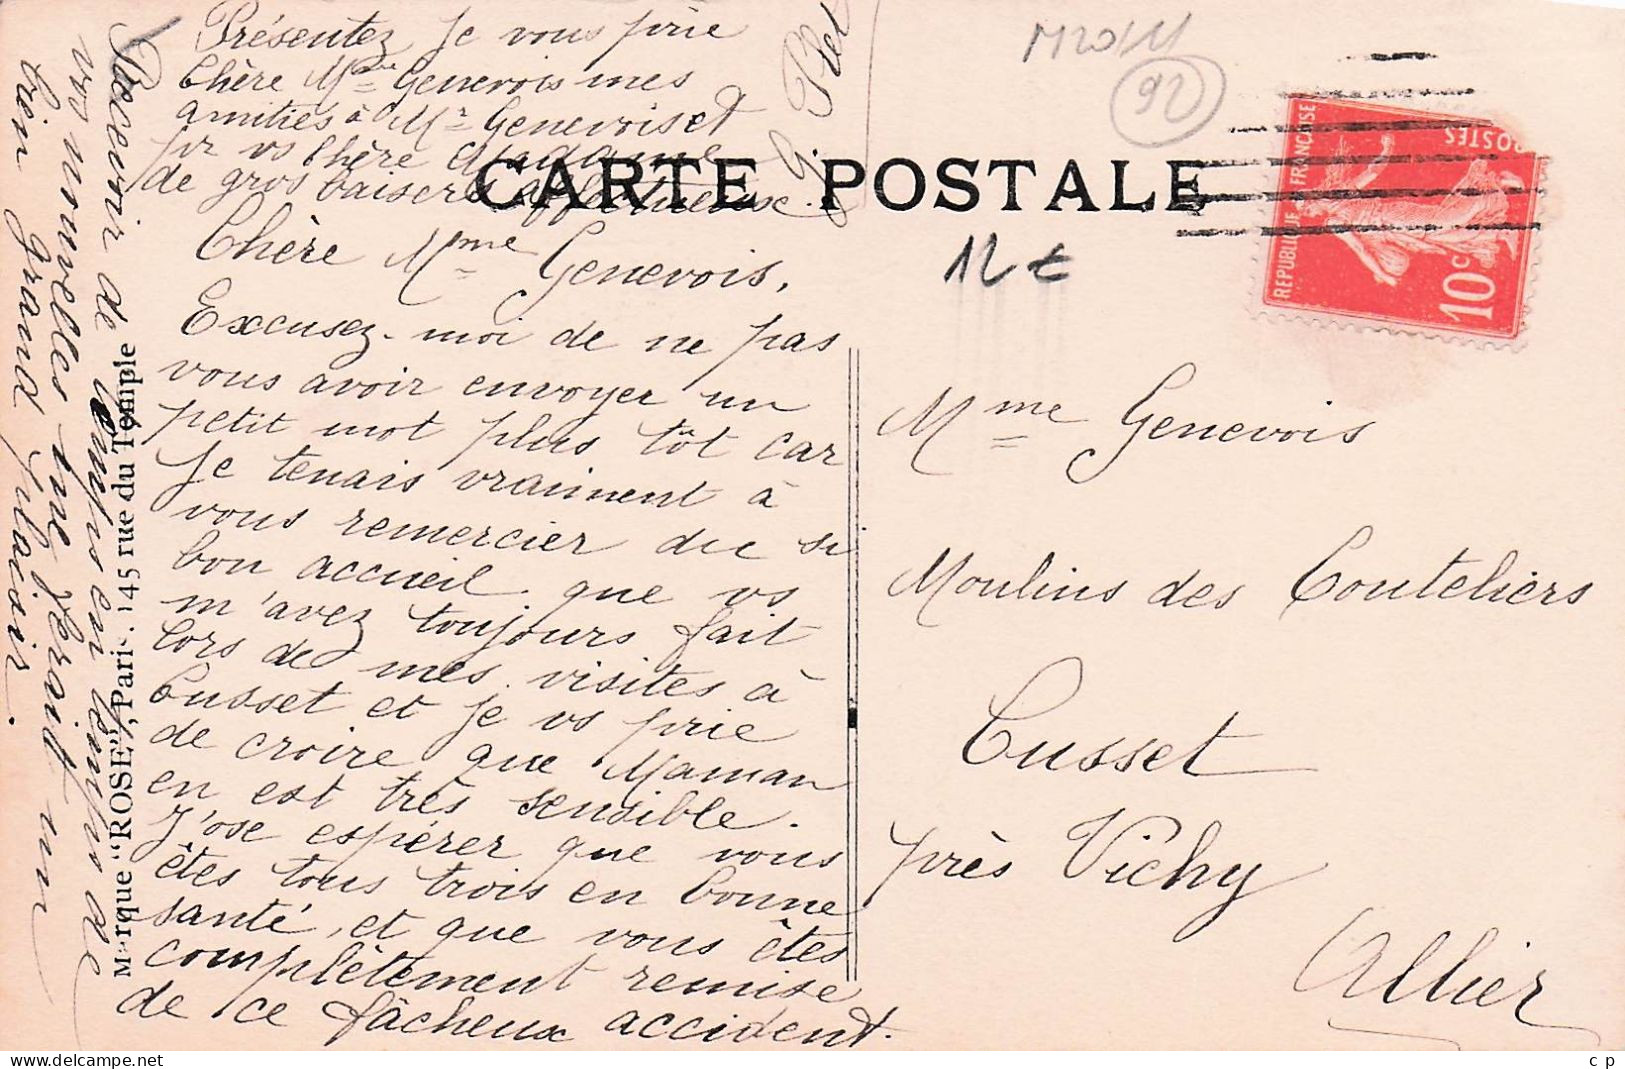 Chère Mme Genevois,
Excusez-moi de ne pas
vous avoir envoyer un
petit mot plus tôt car
je tenais vraiment à
vous remercier du si
bon accueil que vs
m'avez toujours fait
lors de mes visites à
Cusset et je vs prie
de croire que Maman
en est très sensible.
J'ose espérer que vous
êtes tous trois en bonne
santé, et que vous êtes
complètement remise
de ce fâcheux accident.
Recevoir de temps en temps de
vos nouvelles me ferait un
bien grand plaisir.
Présentez je vous prie
Chère Mme Genevois mes
amitiés à Mr Genevois et
pr vs Chère Madame
de gros baisers affectueux.
CARTE POSTALE
Marque "ROSE", Paris, 145 rue du Temple
M2011
92
12 €
REPUBLIQUE FRANÇAISE
POSTES
10c
Mme Genevois
Moulins des Couteliers
Cusset
près Vichy
Allier
www.delcampe.net
c p